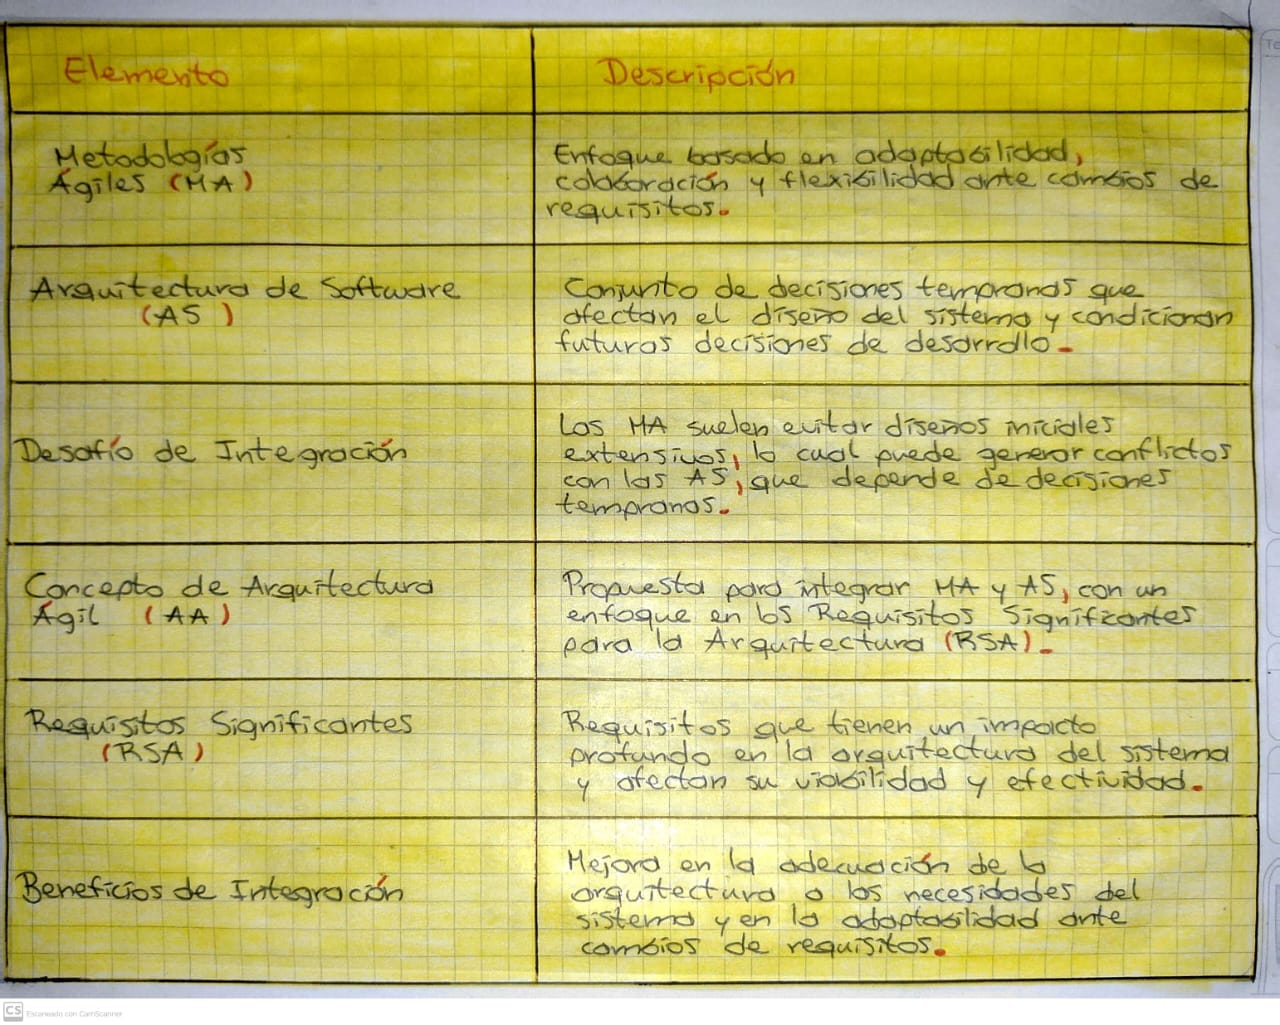 Elemento
Descripción
Metodologías
Ágiles (MA)
Enfoque basado en adaptabilidad,
colaboración y flexibilidad ante cambios de
requisitos.
Arquitectura de Software
(AS)
Conjunto de decisiones tempranas que
afectan el diseño del sistema y condicionan
futuras decisiones de desarrollo.
Desafío de Integración
Las MA suelen evitar diseños iniciales
extensivos, lo cual puede generar conflictos
con las AS, que depende de decisiones
tempranas.
Concepto de Arquitectura
Ágil (AA)
Propuesta para integrar MA y AS, con un
enfoque en los Requisitos Significantes
para la Arquitectura (RSA).
Requisitos Significantes
(RSA)
Requisitos que tienen un impacto
profundo en la arquitectura del sistema
y afectan su viabilidad y efectividad.
Beneficios de Integración
Mejora en la adecuación de la
arquitectura a las necesidades del
sistema y en la adaptabilidad ante
cambios de requisitos.
CS Escaneado con CamScanner